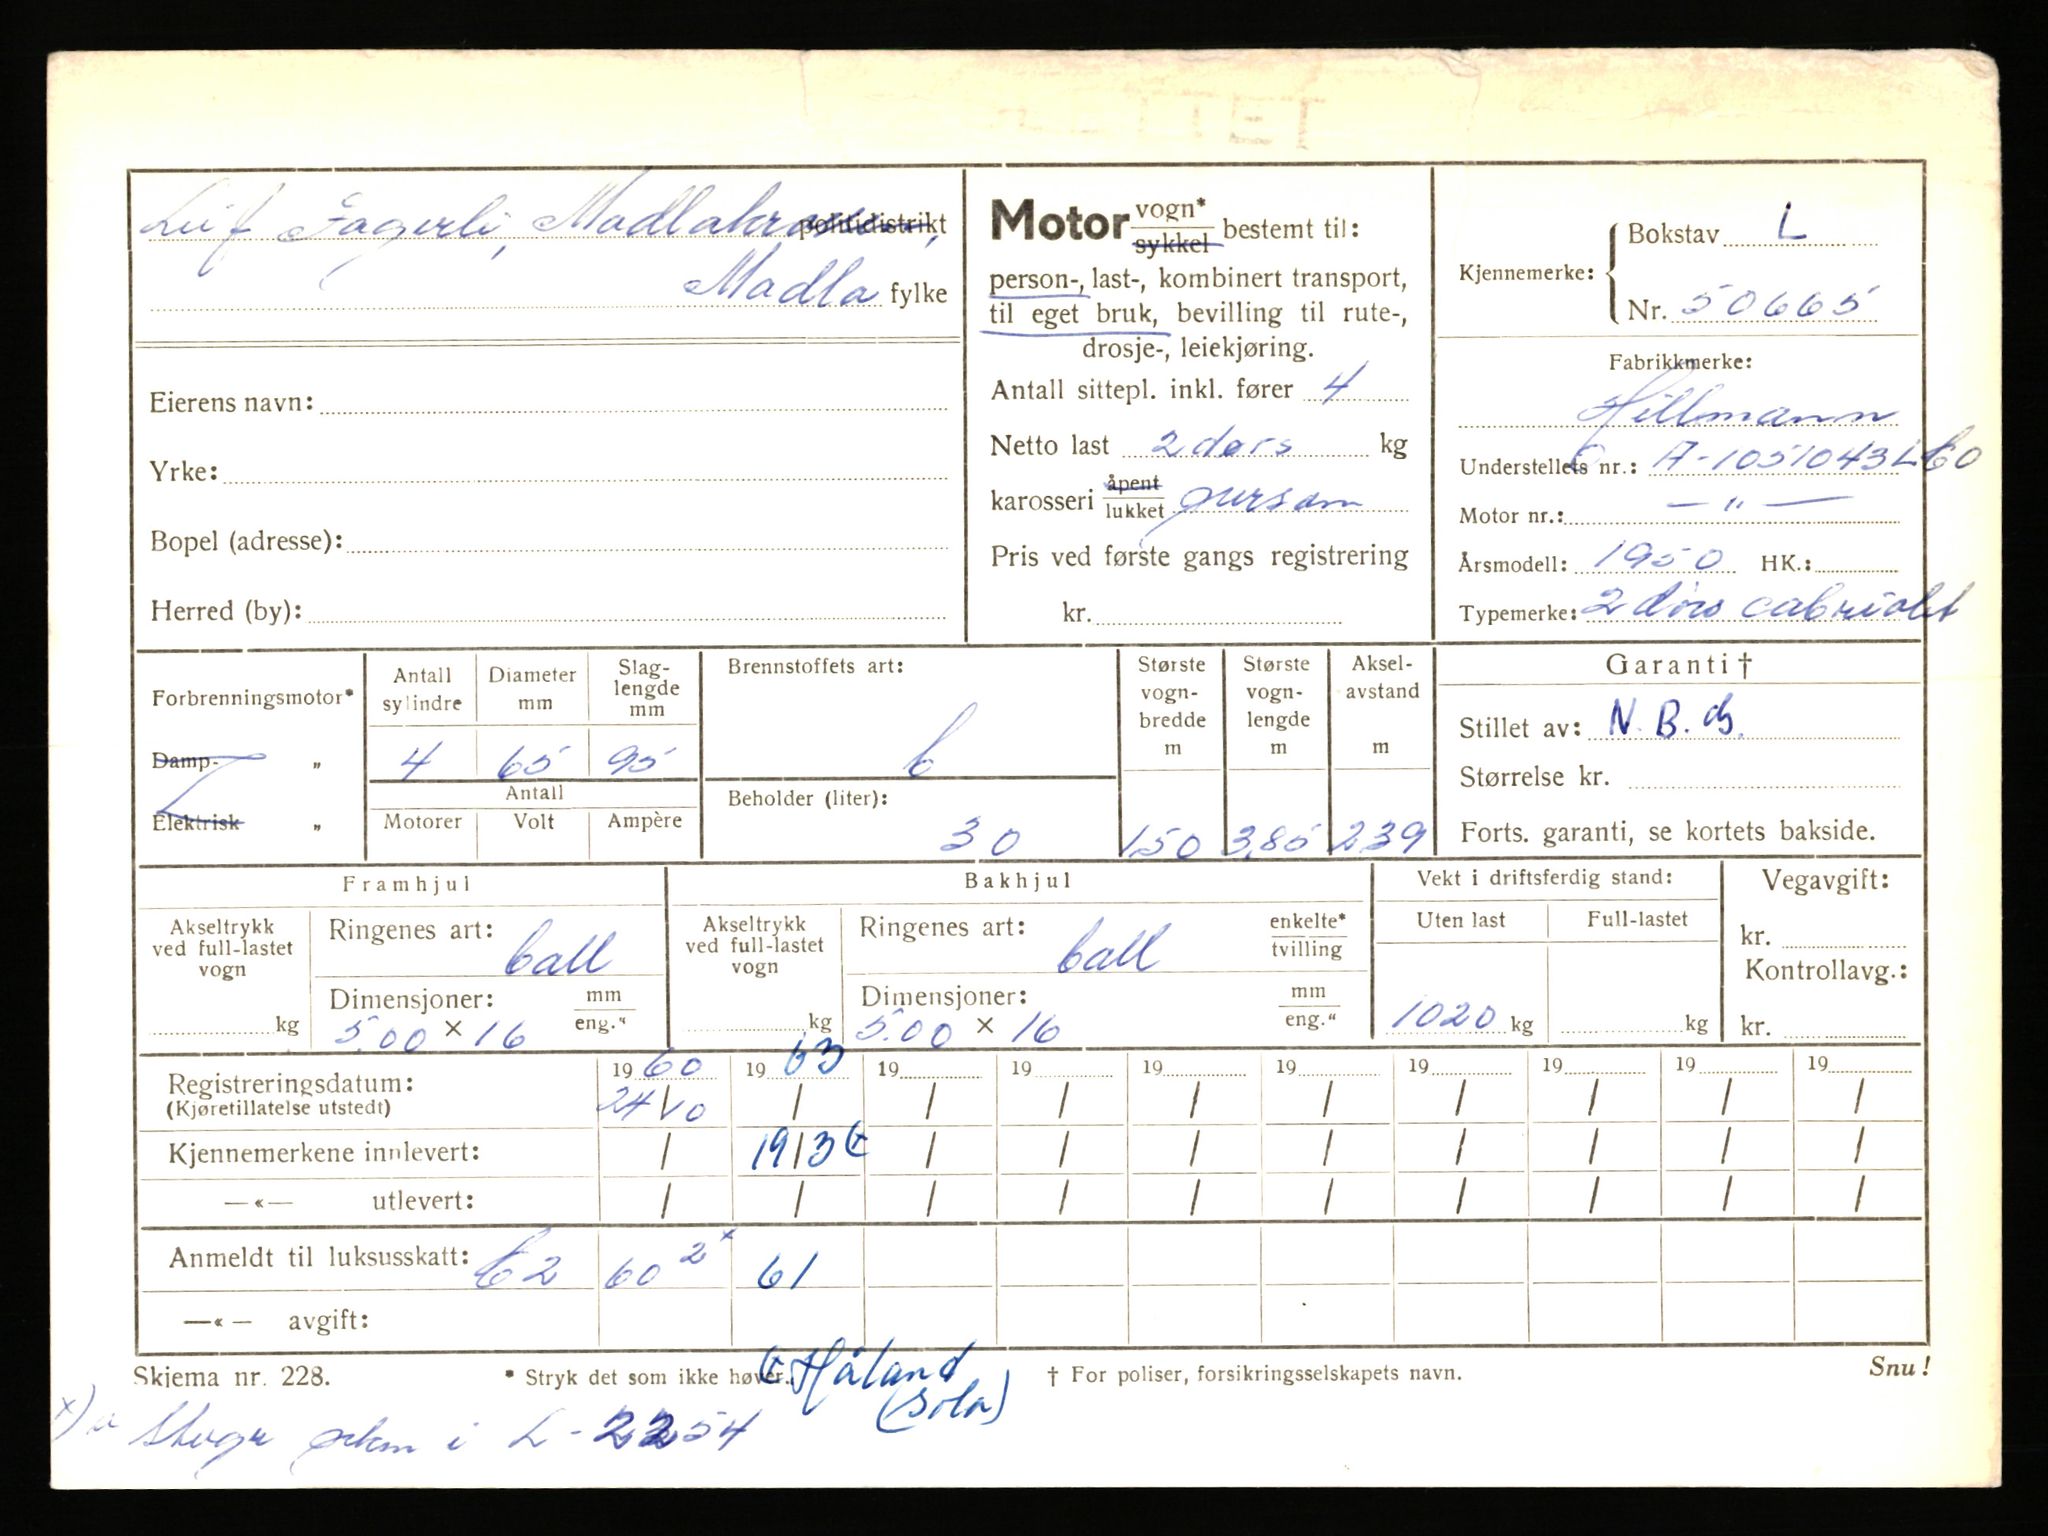 Leif Fagerli, politidistrikt
Madla fylke
Eierens navn:
Yrke:
Bopel (adresse):
Herred (by):
Motor vogn* sykkel bestemt til:
person-, last-, kombinert transport,
til eget bruk, bevilling til rute-,
drosje-, leiekjøring.
Antall sittepl. inkl. fører 4
Netto last 2 dørs kg
karosseri åpent lukket person
Pris ved første gangs registrering
kr.
Kjennemerke: Bokstav L
Nr. 50665
Fabrikkmerke:
Hillmann
Understellets nr.: A-1051043
Motor nr.: — " —
Årsmodell: 1950 HK.:
Typemerke: 2 dørs cabriolet
Forbrenningsmotor*
Damp- „
Elektrisk „
Antall sylindre
Diameter mm
Slag-lengde mm
4 65 95
Antall
Motorer Volt Ampère
Brennstoffets art:
b
Beholder (liter):
30
Største vogn-bredde m
1,50
Største vogn-lengde m
3,85
Aksel-avstand m
239
Garanti †
Stillet av: N. B.
Størrelse kr.
Forts. garanti, se kortets bakside.
Framhjul
Akseltrykk ved full-lastet vogn
kg
Ringenes art: ball
Dimensjoner: mm eng."
5.00 × 16
Bakhjul
Akseltrykk ved full-lastet vogn
kg
Ringenes art: ball enkelte* tvilling
Dimensjoner: mm eng."
5.00 × 16
Vekt i driftsferdig stand:
Uten last Full-lastet
1020 kg kg
Vegavgift:
kr.
Kontrollavg.:
kr.
19 60 19 63 19 19 19 19 19 19 19 19
Registreringsdatum:
(Kjøretillatelse utstedt) 24/10 / / / / / / / / /
Kjennemerkene innlevert: / 19/3 / / / / / / / /
—«— utlevert: / / / / / / / / / /
Anmeldt til luksusskatt: 60 2 x 61
—«— avgift:
Skjema nr. 228. * Stryk det som ikke høver. † For poliser, forsikringsselskapets navn. Snu!
Håland
(Sola)
x) i L-2254